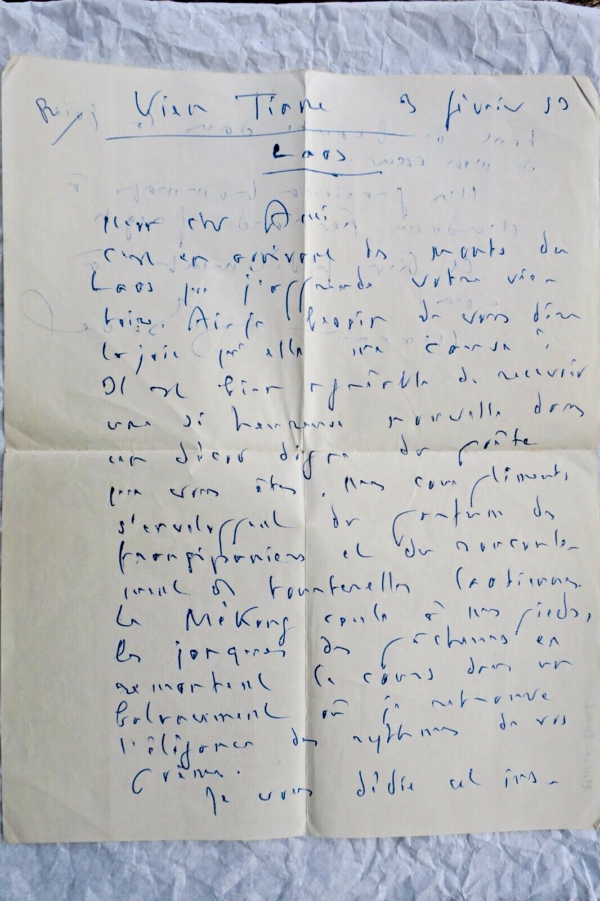 Vien Tiane 3 février 53
Laos
Mon cher Ami
C'est en arrivant des monts du
Laos que j'apprends votre vic-
toire. Ai-je besoin de vous dire
la joie qu'elle me cause ?
Il est bien agréable de recevoir
une si heureuse nouvelle dans
un décor digne du poète
que vous êtes. Mes compliments
s'enveloppent du parfum des
frangipaniers et du roucoule-
ment de tourterelles laotiennes.
Le Mékong coule à mes pieds,
les jonques des pêcheurs en
remontent le cours dans un
balancement où je retrouve
l'élégance des rythmes de vos
Je vous dédie cet ins-